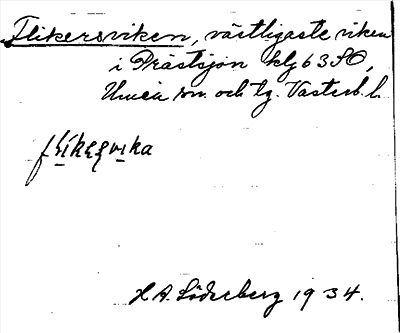 Flikersviken, västligaste viken
i Prästsjön klj 63 SO,
Umeå sn. och tg. Västerb. l.
H A. Söderberg 1934.